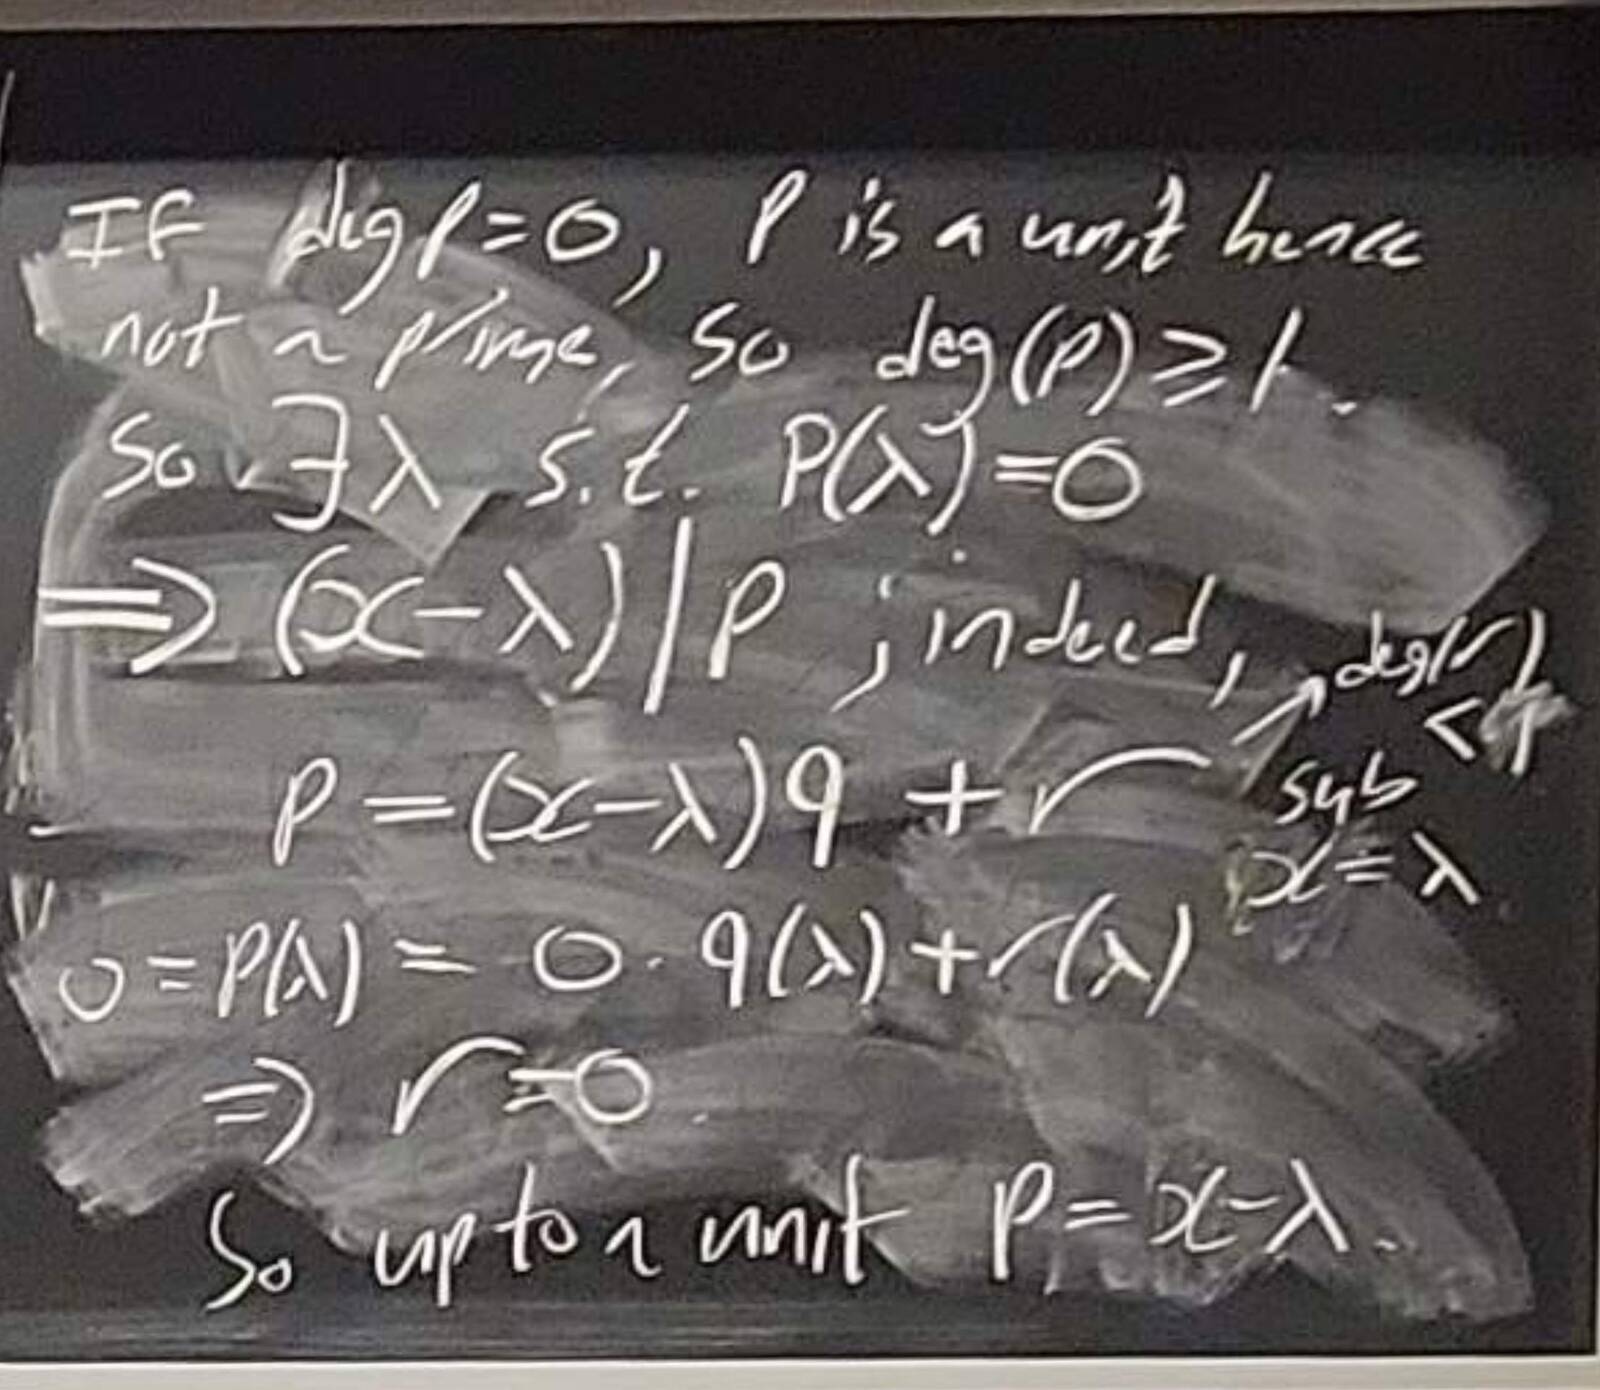 If deg P=0, P is a unit hence
not a prime, so deg(P) ≥ 1.
So ∃λ s.t. P(λ)=0
⇒ (x-λ) | P ; indeed,
deg(r)
<1
P = (x-λ)q + r
sub
x=λ
0 = P(λ) = 0 · q(λ) + r(λ)
⇒ r=0.
So up to a unit P = x-λ.